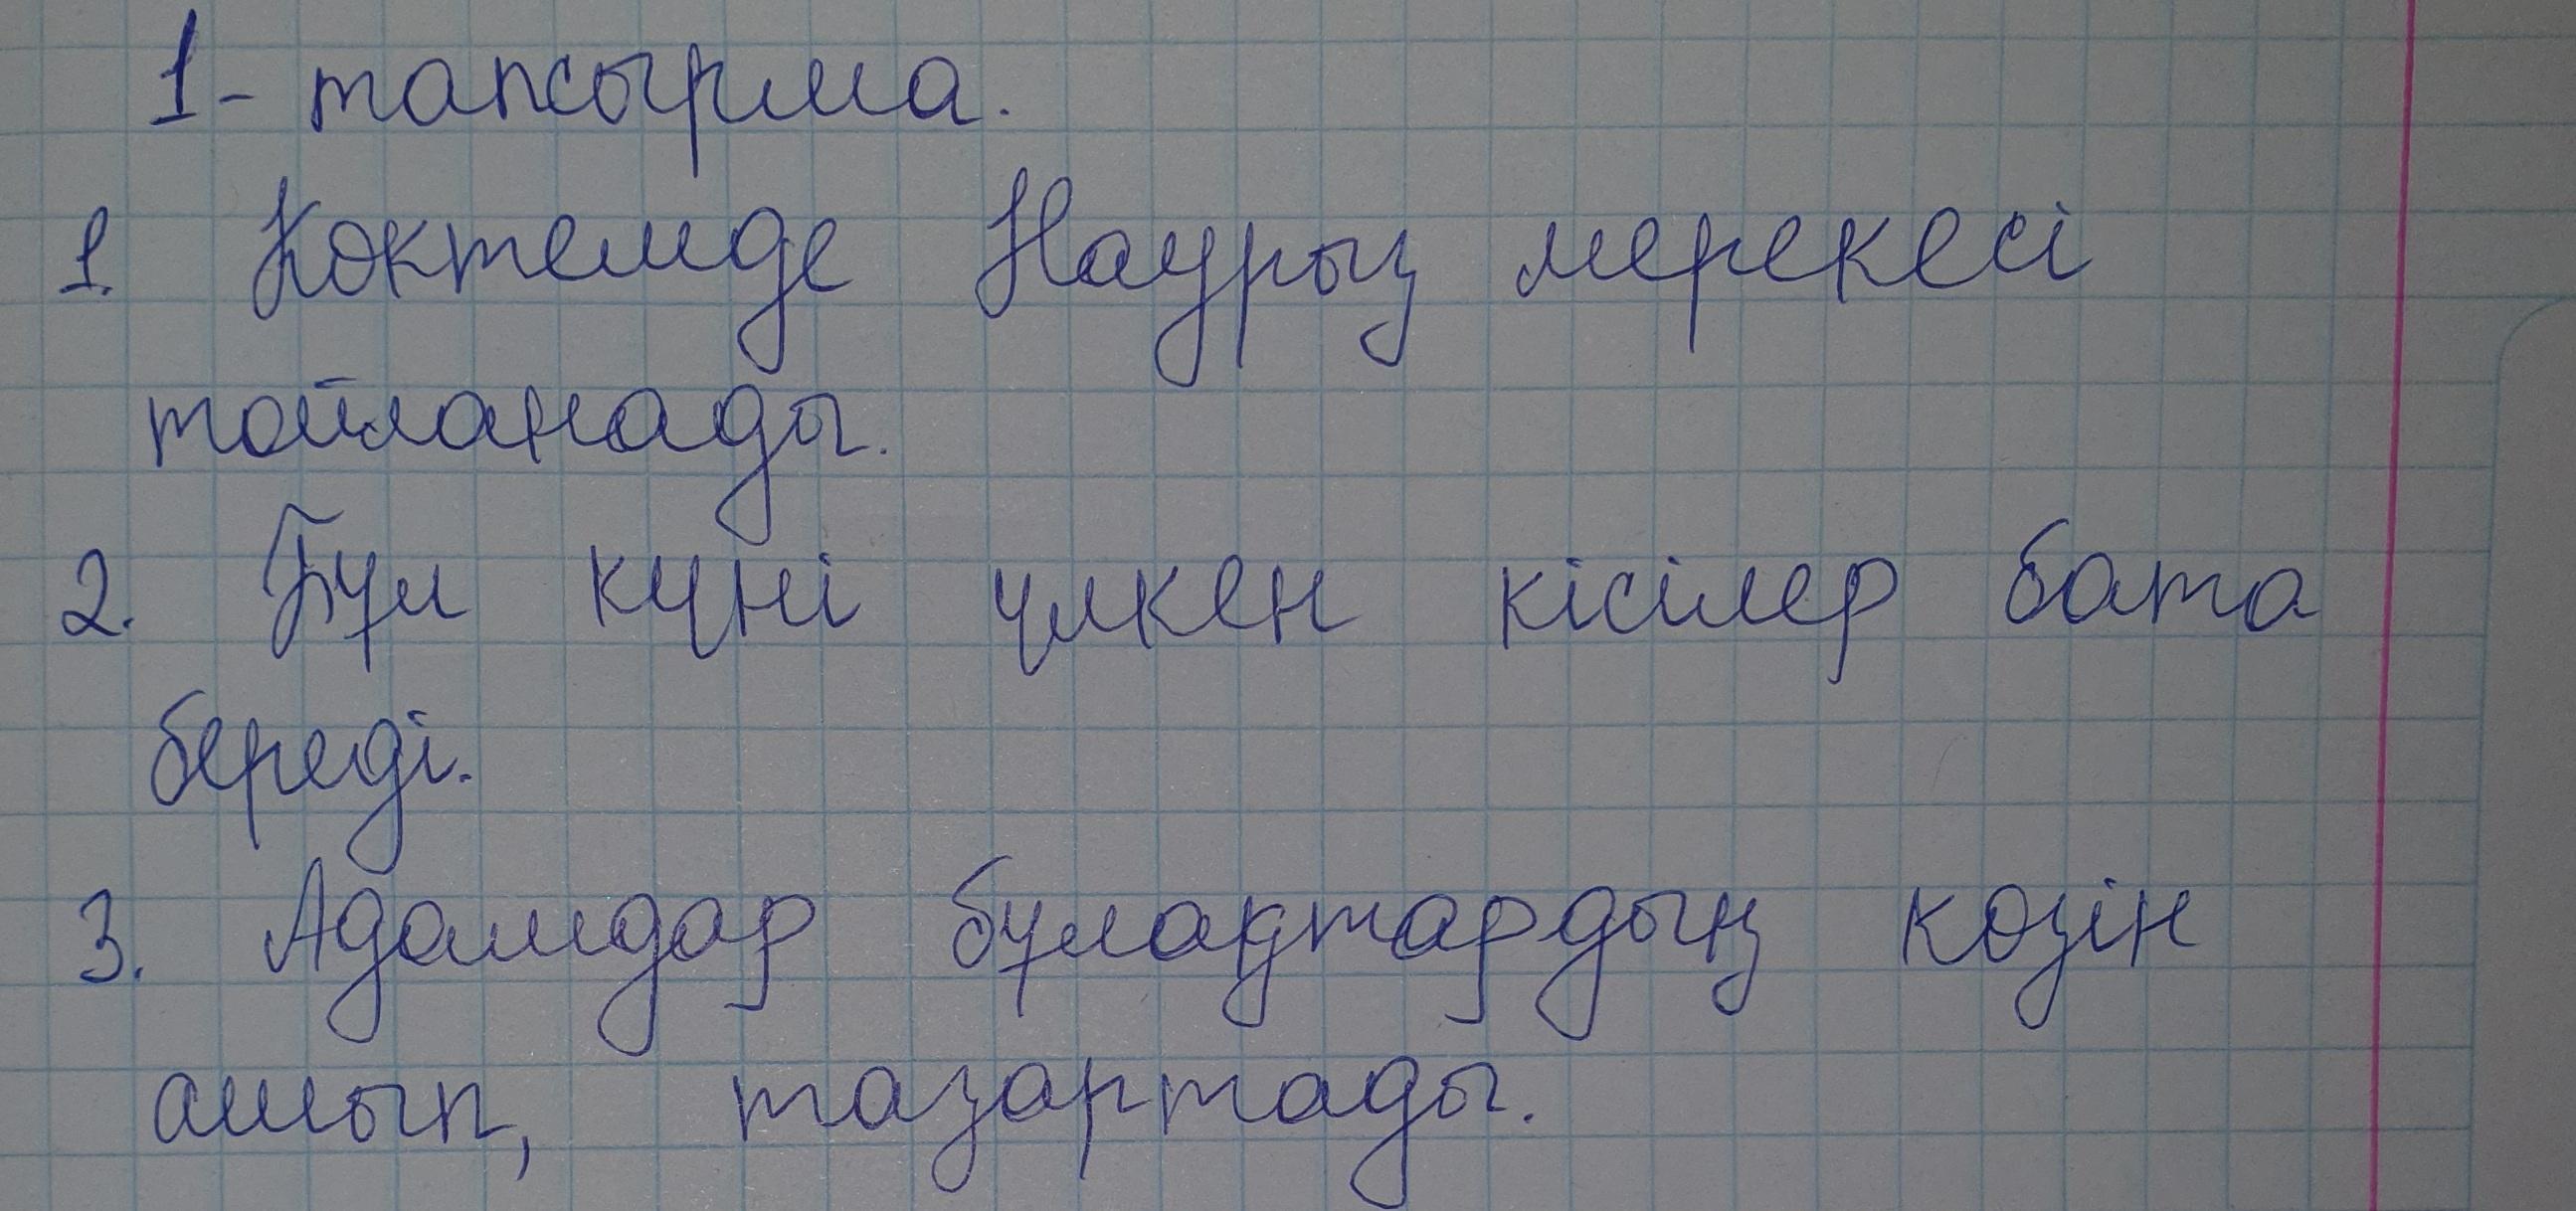 1- тапсырма.
1. Көктемде Наурыз мерекесі
тойланады.
2. Бұл күні үлкен кісілер бата
береді.
3. Адамдар бұлақтардың көзін
ашып, тазартады.